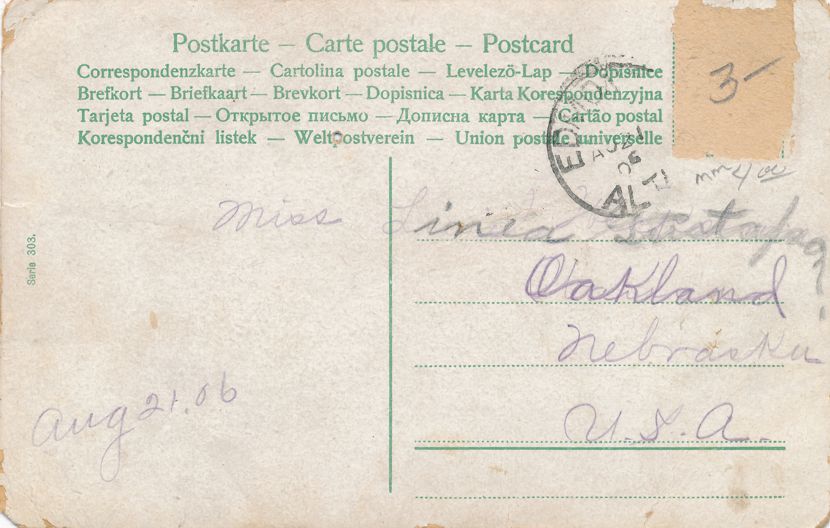 Postkarte – Carte postale – Postcard
Correspondenzkarte — Cartolina postale — Levelező-Lap — Dopisnice
Brefkort — Briefkaart — Brevkort — Dopisnica — Karta Korespondenzyjna
Tarjeta postal — Открытое письмо — Дописна карта — Cartão postal
Korespondenčni listek — Weltpostverein — Union postale universelle
3-
mm 4.00
AU 21
06
ALTA
Miss Linea
Oakland
Nebraska
U.S.A.
Aug 21.06
Serie 303.